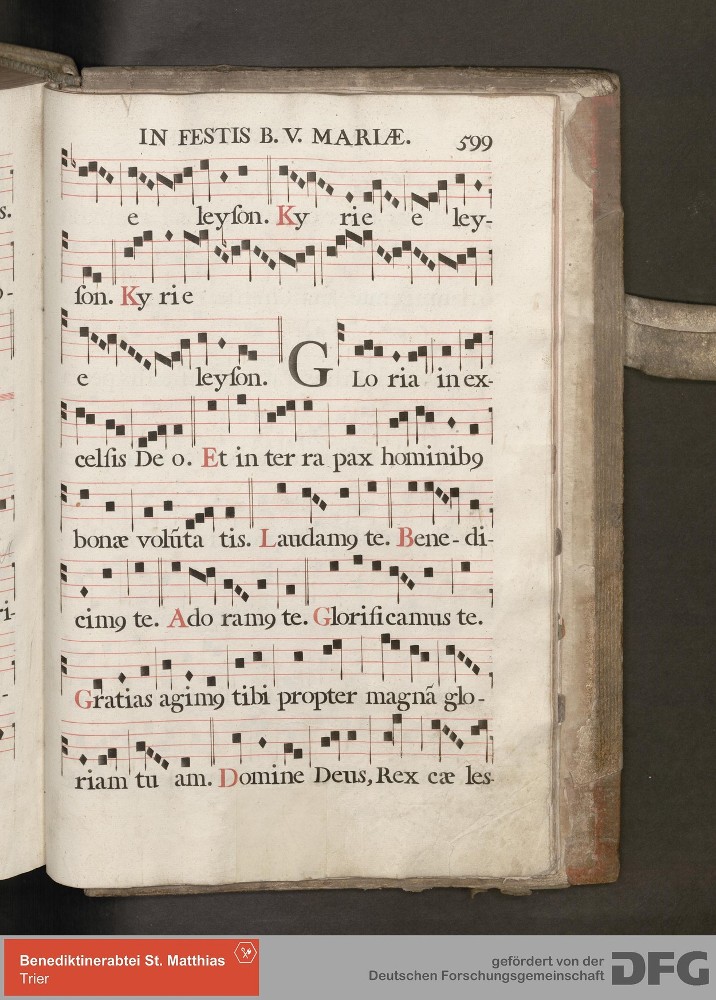 IN FESTIS B. V. MARIÆ. 599
e leyſon. Ky rie e ley-
ſon. Ky rie
e leyſon. G Lo ria in ex-
celſis De o. Et in ter ra pax hominibꝯ
bonæ volũta tis. Laudamꝯ te. Bene-di-
cimꝯ te. Ado ramꝯ te. Glorificamus te.
Gratias agimꝯ tibi propter magnã glo-
riam tu am. Domine Deus, Rex cæ les-
Benediktinerabtei St. Matthias
Trier
gefördert von der
Deutschen Forschungsgemeinschaft
DFG